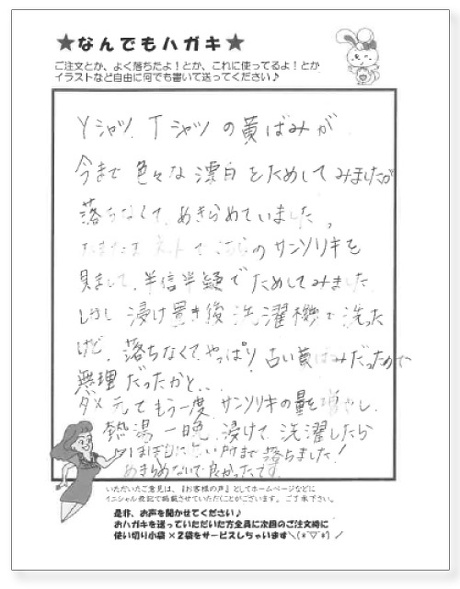 ★なんでもハガキ★
ご注文とか、よく落ちたよ！とか、これに使ってるよ！とか
イラストなど自由に何でも書いて送ってください♪
Yシャツ、Tシャツの黄ばみが
今まで色々な漂白をためしてみましたが
落ちなくて、あきらめていました。
たまたまネットでこちらのサンソリキを
見まして、半信半疑でためしてみました
しかし浸け置き後洗濯機で洗った
けど、落ちなくてやっぱり古い黄ばみだったので
無理だったかと、、、
ダメ元でもう一度サンソリキの量を増やし、
熱湯一晩浸けて洗濯したら
所まで落ちました！
あきらめないで良かったです
いただいたご意見は、『お客様の声』としてホームページなどに
イニシャル表記で掲載させていただくことがございます。ご了承下さい。
是非、お声を聞かせてください♪
おハガキを送っていただいた方全員に次回のご注文時に
使い切り小袋×2袋をサービスしちゃいます＼(*^▽^*)／